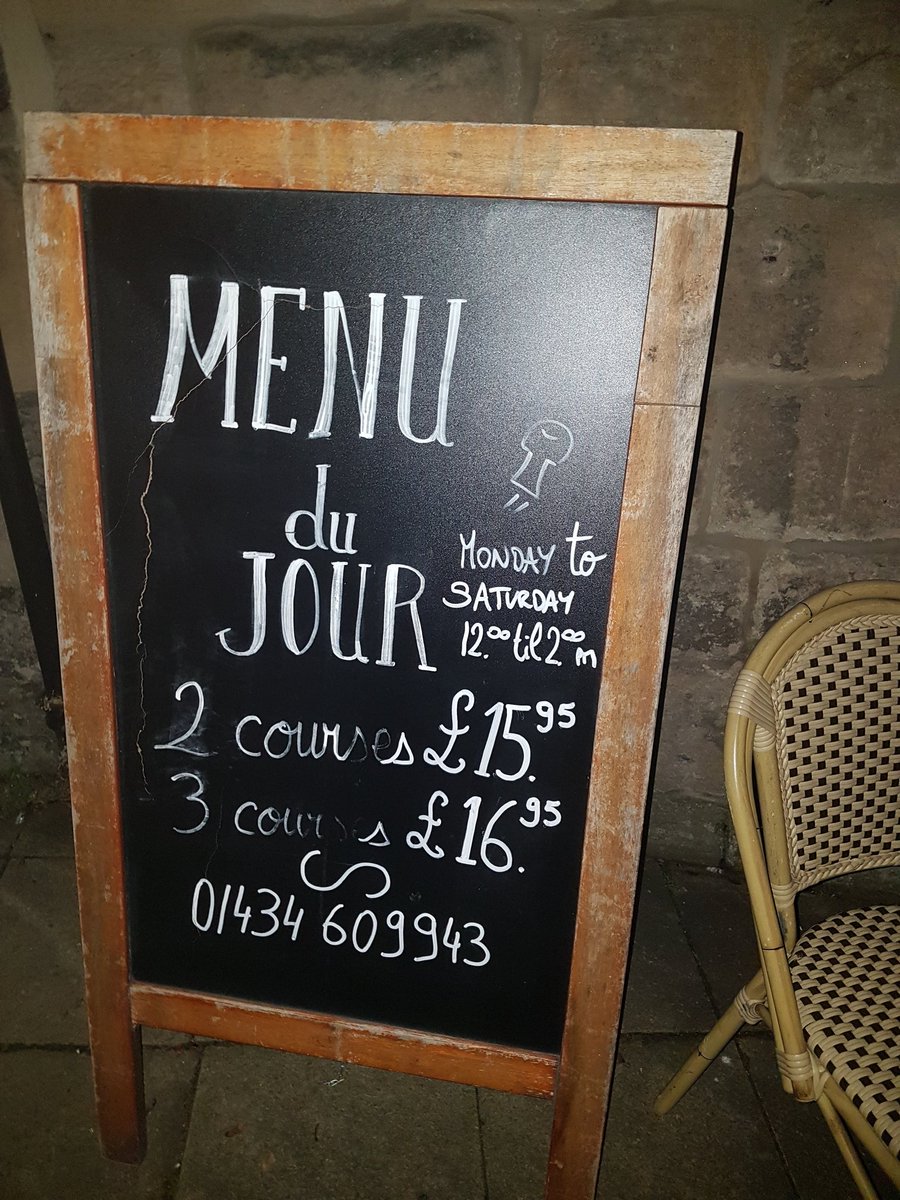 MENU
du
JOUR
MONDAY to
SATURDAY
12.00 til 2.00 m
2 courses £15.95
3 courses £16.95
01434 609943